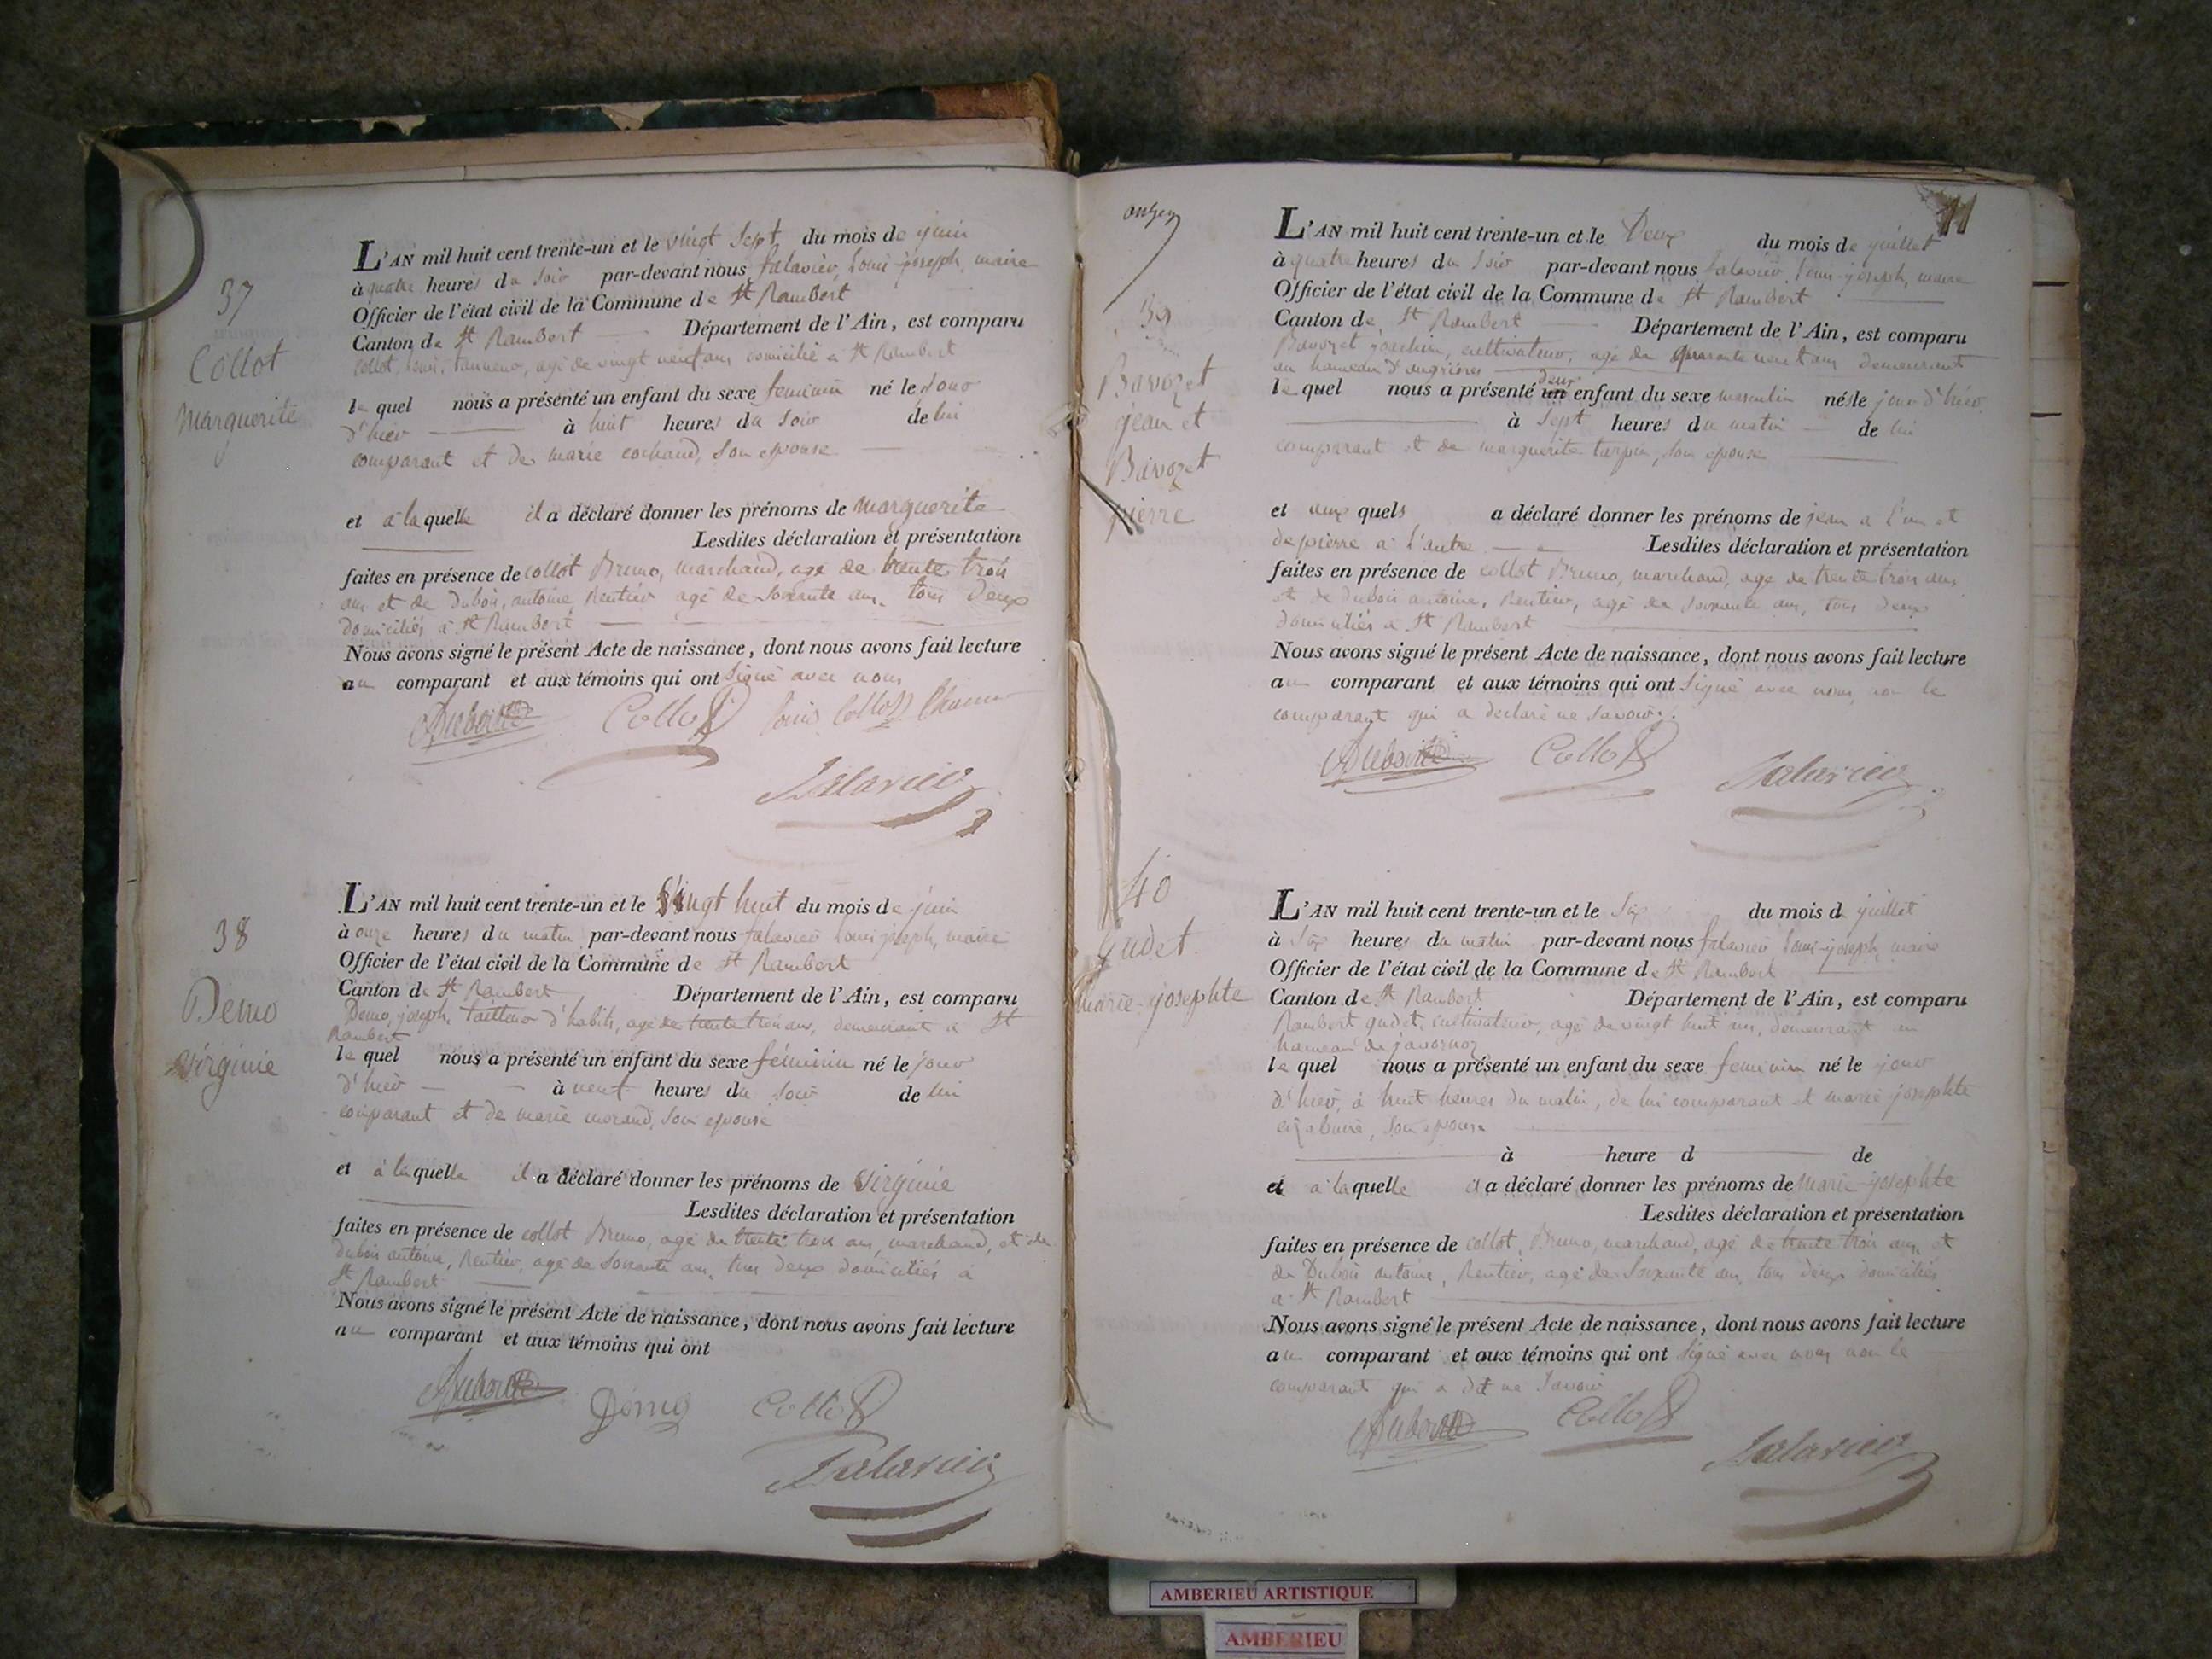 37
Collot
Marguerite
L'AN mil huit cent trente-un et le vingt Sept du mois de juin
à quatre heures du Soir par-devant nous falavier, Louis-joseph, maire
Officier de l'état civil de la Commune de St Rambert
Canton de St Rambert Département de l'Ain, est comparu
Collot, Louis, tanneur, agé de vingt neuf ans domicilié à St Rambert
le quel nous a présenté un enfant du sexe feminin né le Jour
d'hier à huit heures du Soir de lui
comparant et de marie cochaud, Son epouse
et à la quelle il a déclaré donner les prénoms de marguerite
Lesdites déclaration et présentation
faites en présence de collot Bruno, marchand, agé de trente trois
ans et de Dubois, antoine, Rentier agé de Soixante ans, tous Deux
domiciliés à St Rambert
Nous avons signé le présent Acte de naissance, dont nous avons fait lecture
au comparant et aux témoins qui ont Signé avec nous
Dubois Collot Louis Collot
falavier
38
Demo
Virginie
L'AN mil huit cent trente-un et le Vingt huit du mois de juin
à onze heures du matin par-devant nous falavier Louis joseph, maire
Officier de l'état civil de la Commune de St Rambert
Canton de St Rambert Département de l'Ain, est comparu
Demo, joseph, tailleur d'habits, agé de trente trois ans, demeurant à St
Rambert
le quel nous a présenté un enfant du sexe féminin né le jour
d'hier à neuf heures du Soir de lui
comparant et de marie morand, Son epouse
et à la quelle il a déclaré donner les prénoms de Virginie
Lesdites déclaration et présentation
faites en présence de collot Bruno, agé de trente trois ans, marchand, et de
Dubois antoine, Rentier, agé de Soixante ans, tous deux domiciliés à
St Rambert
Nous avons signé le présent Acte de naissance, dont nous avons fait lecture
au comparant et aux témoins qui ont
Dubois Demo Collot
falavier
onze
11
39
Bavozet
jean et
Bavozet
pierre
L'AN mil huit cent trente-un et le Deux du mois de juillet
à quatre heures du Soir par-devant nous falavier Louis-joseph, maire
Officier de l'état civil de la Commune de St Rambert
Canton de St Rambert Département de l'Ain, est comparu
Bavozet joachim, cultivateur, agé de quarante neuf ans demeurant
au hameau d'angrieres
le quel nous a présenté un deux enfant du sexe masculin nés le jour d'hier
à Sept heures du matin de lui
comparant et de marguerite tarpin, Son epouse
et aux quels a déclaré donner les prénoms de jean a l'un et
de pierre a l'autre Lesdites déclaration et présentation
faites en présence de collot Bruno, marchand, agé de trente trois ans
et de Dubois antoine, Rentier, agé de Soixante ans, tous deux
domiciliés a St Rambert
Nous avons signé le présent Acte de naissance, dont nous avons fait lecture
au comparant et aux témoins qui ont Signé avec nous, non le
comparant qui a declaré ne Savoir.
Dubois Collot falavier
40
gudet
marie-josephte
L'AN mil huit cent trente-un et le Six du mois d juillet
à Six heures du matin par-devant nous falavier Louis-joseph, maire
Officier de l'état civil de la Commune de St Rambert
Canton de St Rambert Département de l'Ain, est comparu
Rambert gudet, cultivateur, agé de vingt huit ans, demeurant au
hameau de javornoz
le quel nous a présenté un enfant du sexe feminin né le jour
d'hier, à huit heures du matin, de lui comparant et marie-josephte
Son epouse
à heure d de
et à la quelle il a déclaré donner les prénoms de marie-josephte
Lesdites déclaration et présentation
faites en présence de collot, Bruno, marchand, agé de trente trois ans, et
de Dubois antoine, Rentier, agé de Soixante ans, tous deux domiciliés
a St Rambert
Nous avons signé le présent Acte de naissance, dont nous avons fait lecture
au comparant et aux témoins qui ont Signé avec nous non le
comparant qui a dit ne Savoir
Dubois Collot falavier
AMBERIEU ARTISTIQUE
AMBERIEU